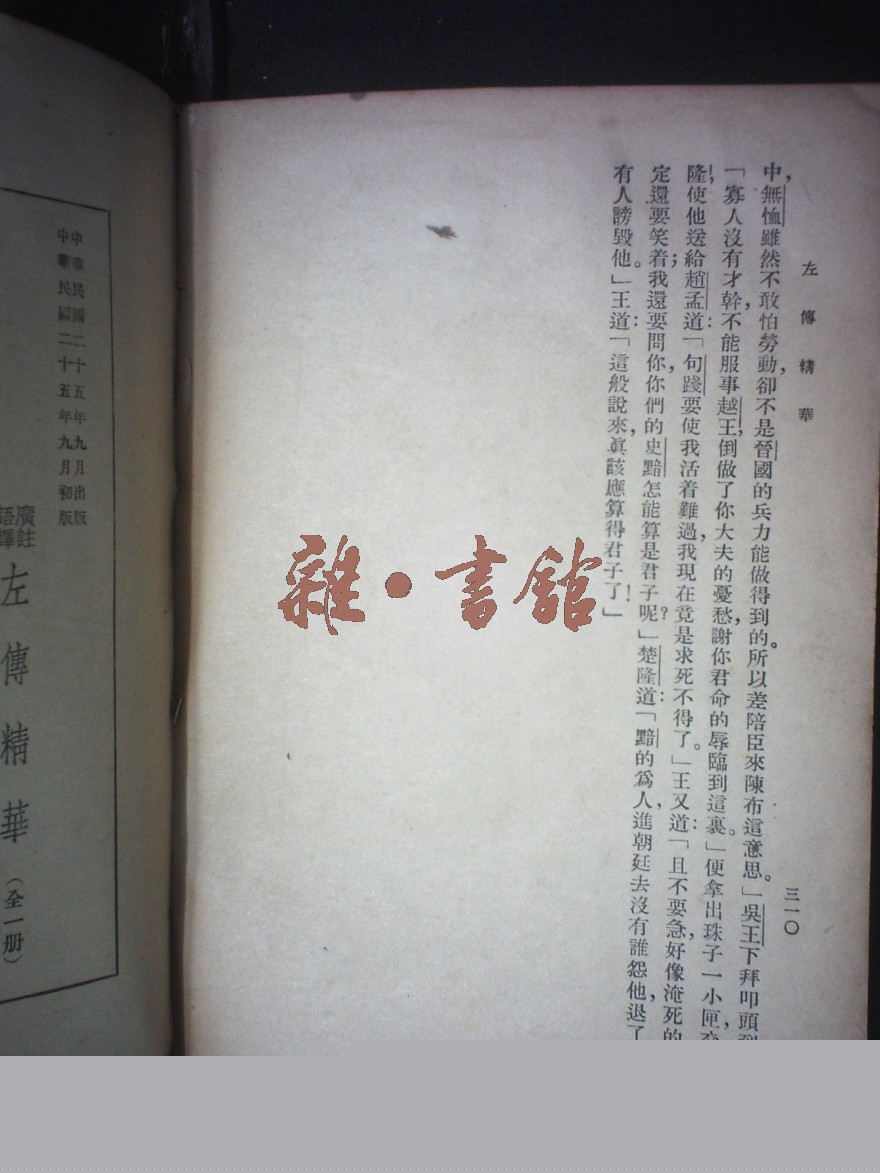 左傳精華
三一〇
中，無恤雖然不敢怕勞動，卻不是晉國的兵力能做得到的。所以差陪臣來陳布這意思。」吳王下拜叩頭
「寡人沒有才幹，不能服事越王，倒做了你大夫的憂愁，謝你君命的辱臨到這裏。」便拿出珠子一小匣，
隆，使他送給趙孟道：「句踐要使我活着難過，我現在竟是求死不得了。」王又道：「且不要急，好像淹死的
定還要笑着；我還要問你，你們的史黯怎能算是君子呢？」楚隆道：「黯的爲人，進朝廷去沒有誰怨他，退了
有人謗毀他。」王道：「這般說來，眞該應算得君子了！」
雜·書館
中華民國二十五年九月出版
中華民國二十五年九月初版
廣註
語譯
左傳精華（全一册）